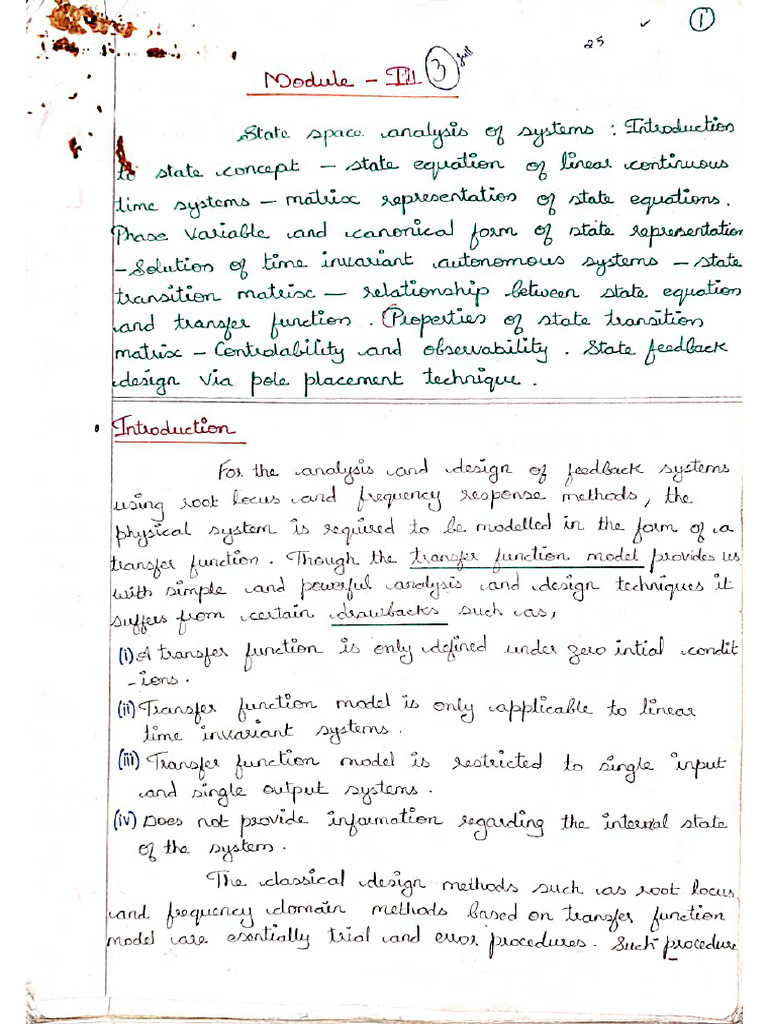 1
25
Module - III 3
State space analysis of systems : Introduction
to state concept - state equation of linear continuous
time systems - matrix representation of state equations.
Phase variable and canonical form of state representation
- Solution of time invariant autonomous systems - state
transition matrix - relationship between state equation
and transfer function. Properties of state transition
matrix - Controlability and observability. State feedback
design via pole placement technique.
• Introduction
For the analysis and design of feedback systems
using root locus and frequency response methods, the
physical system is required to be modelled in the form of a
transfer function. Though the transfer function model provides us
with simple and powerful analysis and design techniques it
suffers from certain drawbacks such as,
(i) A transfer function is only defined under zero intial condit
-ions.
(ii) Transfer function model is only applicable to linear
time invariant systems.
(iii) Transfer function model is restricted to single input
and single output systems.
(iv) Does not provide information regarding the internal state
of the system.
The classical design methods such as root locus
and frequency domain methods based on transfer function
model are esentially trial and error procedures. Such procedure